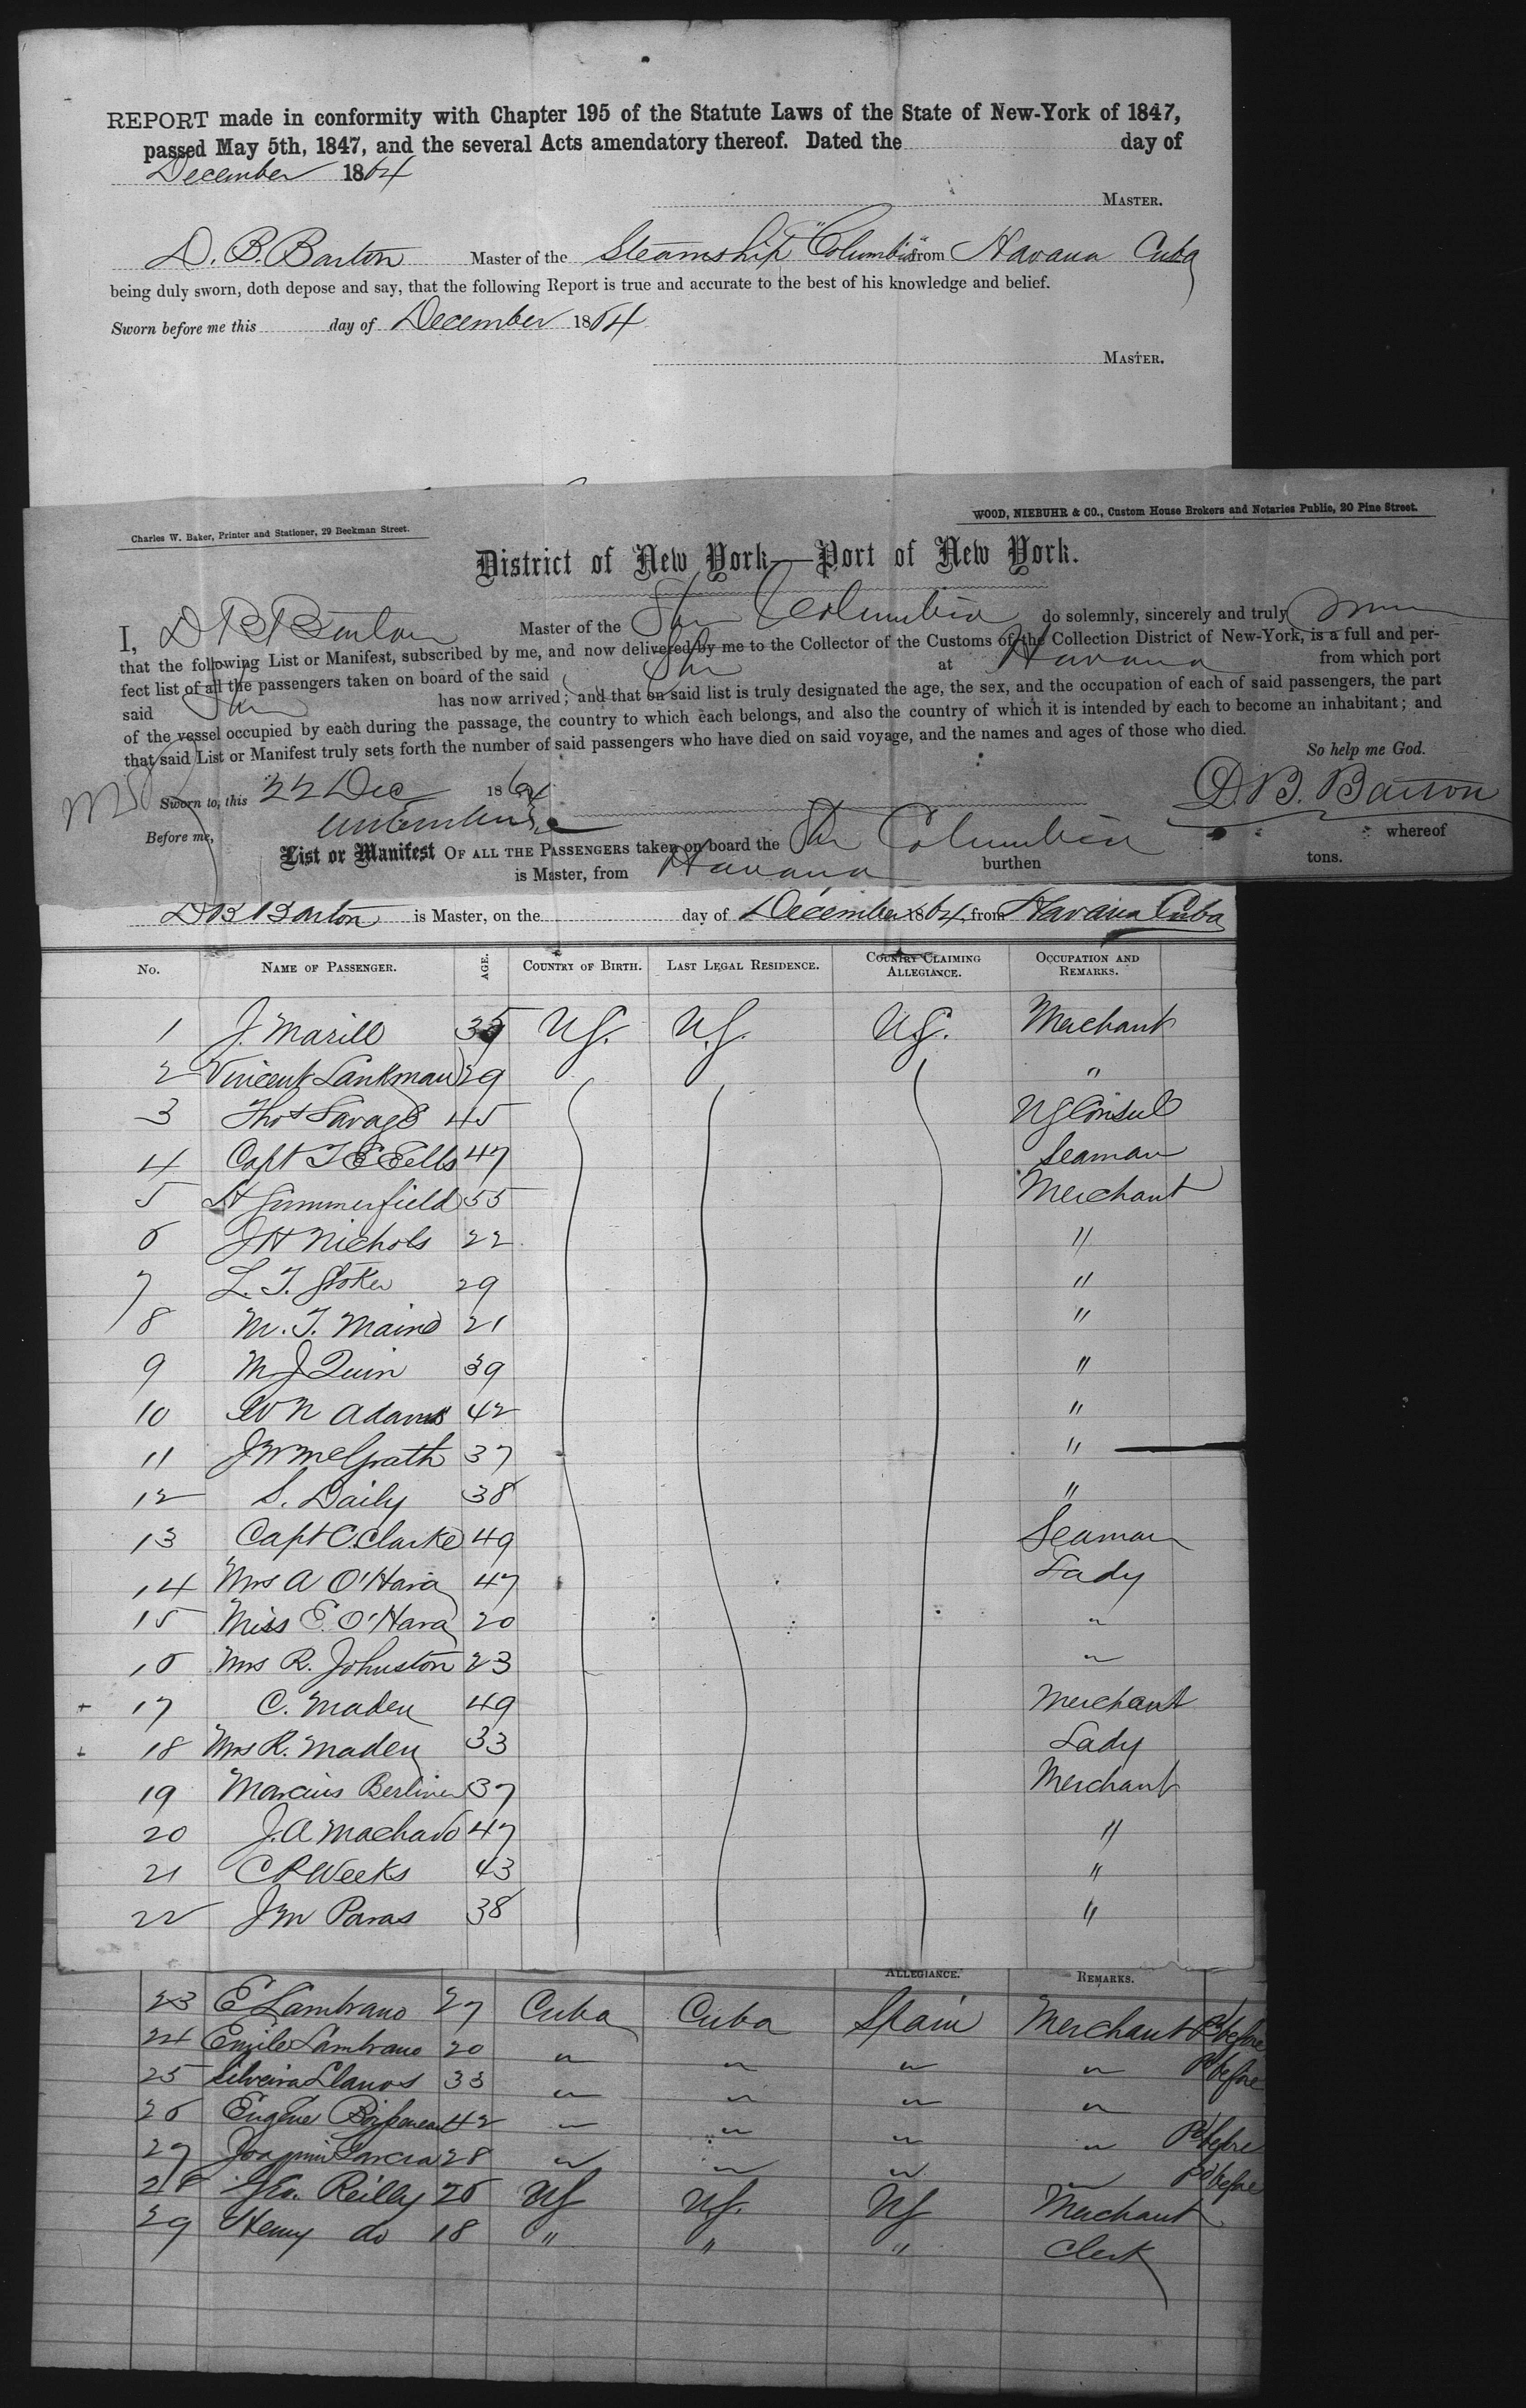 REPORT made in conformity with Chapter 195 of the Statute Laws of the State of New-York of 1847,
passed May 5th, 1847, and the several Acts amendatory thereof. Dated the day of
December 1864
MASTER.
D. B. Barton Master of the Steamship "Columbia" from Havana Cuba
being duly sworn, doth depose and say, that the following Report is true and accurate to the best of his knowledge and belief.
Sworn before me this day of December 1864
MASTER.
Charles W. Baker, Printer and Stationer, 29 Beekman Street.
WOOD, NIEBUHR & CO., Custom House Brokers and Notaries Public, 20 Pine Street.
District of New York—Port of New York.
I, D B Barton Master of the Str Columbia do solemnly, sincerely and truly
that the following List or Manifest, subscribed by me, and now delivered by me to the Collector of the Customs of the Collection District of New-York, is a full and per-
fect list of all the passengers taken on board of the said Str at Havana from which port
said Str has now arrived; and that on said list is truly designated the age, the sex, and the occupation of each of said passengers, the part
of the vessel occupied by each during the passage, the country to which each belongs, and also the country of which it is intended by each to become an inhabitant; and
that said List or Manifest truly sets forth the number of said passengers who have died on said voyage, and the names and ages of those who died.
So help me God.
Sworn to, this 22 Dec 1864
D. B. Barton
Before me,
List or Manifest OF ALL THE PASSENGERS taken on board the Str Columbia whereof
is Master, from Havana burthen tons.
D B Barton is Master, on the day of December 1864, from Havana Cuba
No. NAME OF PASSENGER. AGE. COUNTRY OF BIRTH. LAST LEGAL RESIDENCE. COUNTRY CLAIMING ALLEGIANCE. OCCUPATION AND REMARKS.
1 J. Marill 35 US. US. US. Merchant
2 Vincent Lankman 29 "
3 Thos Savage 45 US Consul
4 Capt T E Eells 47 Seaman
5 H Summerfield 55 Merchant
6 J H Nichols 22 "
7 L. T. Stoker 29 "
8 M. T. Maine 21 "
9 M J Quin 39 "
10 W N Adams 42 "
11 J W McGrath 37 "
12 S. Daily 38 "
13 Capt C. Clarke 49 Seaman
14 Mrs A O'Hara 47 Lady
15 Miss E. O'Hara 20 "
16 Mrs R. Johnston 23 "
+ 17 C. Maden 49 Merchant
+ 18 Mrs R. Maden 33 Lady
19 Marcius Berliner 37 Merchant
20 J. A Machado 47 "
21 C R Weeks 43 "
22 J M Paras 38 "
ALLEGIANCE. REMARKS.
23 E Lambrano 27 Cuba Cuba Spain Merchant before
24 Emile Lambrano 20 " " " " before
25 Silveira Llanos 33 " " " "
26 Eugene 42 " " " " before
27 Joaquin Garcia 28 " " " " before
28 Geo. Reilly 26 US US. US Merchant
29 Henry do 18 " " " Clerk